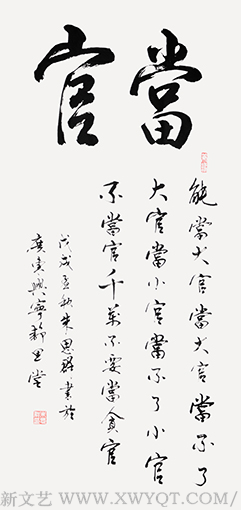 當官
能當大官當大官當不了
大官當小官當不了小官
不當官千萬不要當貪官
戊戌孟秋朱思群書於
廣東興寧靜思堂
新文艺 WWW.XWYQT.COM/